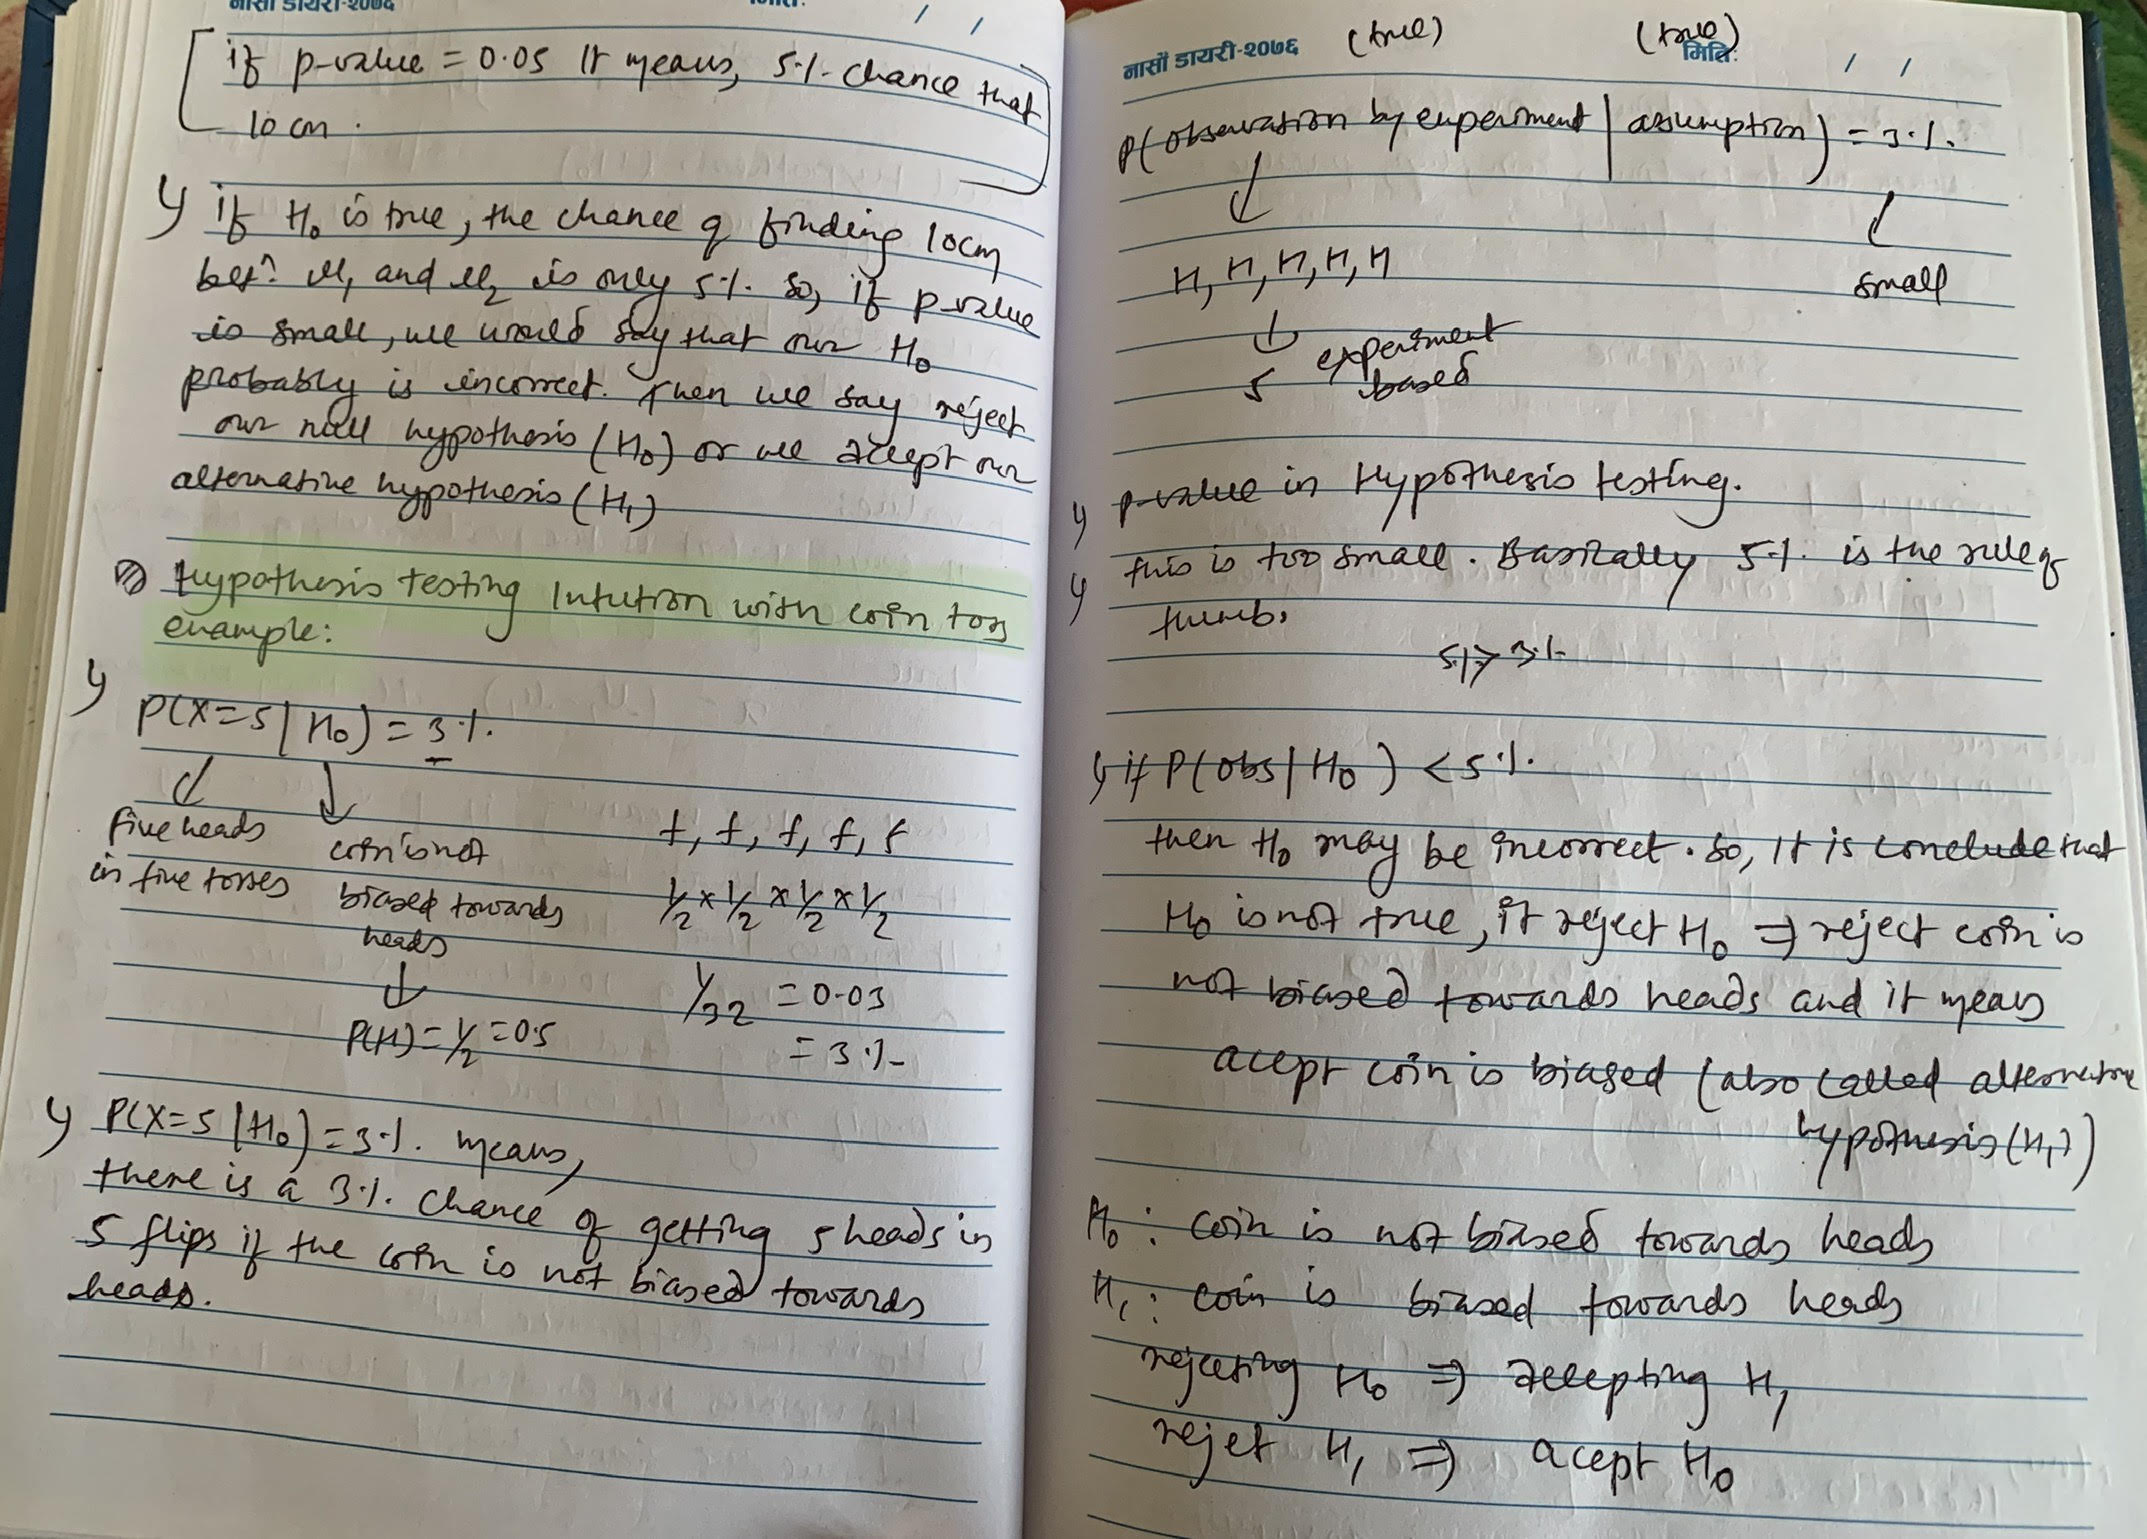 नासों डायरी-२०७६ मिति:
/ /
if p-value = 0.05 It means, 5% chance that
10 cm.
if H₀ is true, the chance of finding 10cm
betⁿ μ₁ and μ₂ is only 5%. So, if p-value
is small, we would say that our H₀
probably is incorrect. Then we say reject
our null hypothesis (H₀) or we accept our
alternative hypothesis (H₁)
Hypothesis testing Intution with coin toss
example:
P(X=5 | H₀) = 3%.
five heads
in five tosses
coin is not
biased towards
heads
P(H) = 1/2 = 0.5
f, f, f, f, f
1/2 × 1/2 × 1/2 × 1/2
1/32 = 0.03
= 3%
P(X=5 | H₀) = 3%. means,
there is a 3%. chance of getting 5 heads in
5 flips if the coin is not biased towards
heads.
नासों डायरी-२०७६ (true) (true)
मिति: / /
P(observation by experiment | assumption) = 3%.
H, H, H, H, H
small
5 experiment
based
p-value in Hypothesis testing.
this is too small. Basically 5%. is the rule of
thumb.
5%> 3%
if P(obs | H₀) < 5%.
then H₀ may be incorrect. So, It is conclude that
H₀ is not true, it reject H₀ ⇒ reject coin is
not biased towards heads and it means
acept coin is biased (also called alternative
hypothesis (H₁))
H₀ : coin is not biased towards heads
H₁ : coin is biased towards heads
rejecting H₀ ⇒ accepting H₁
rejet H₁ ⇒ acept H₀